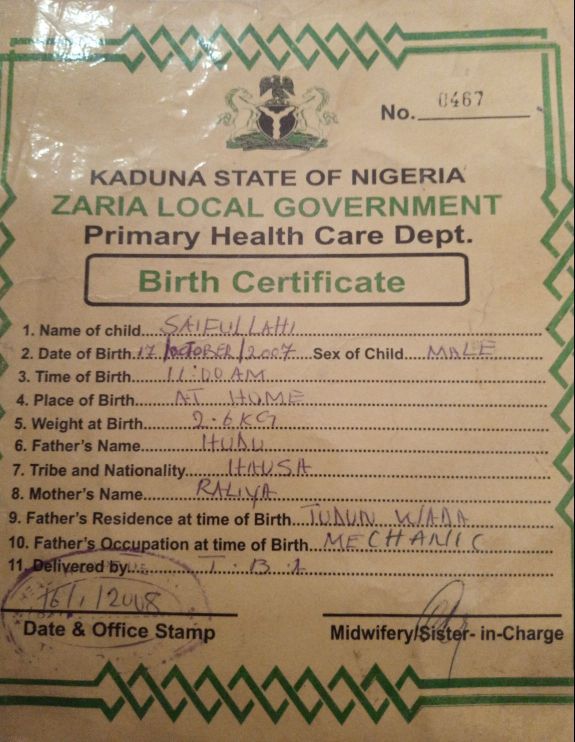 No. 0467
KADUNA STATE OF NIGERIA
ZARIA LOCAL GOVERNMENT
Primary Health Care Dept.
Birth Certificate
1. Name of child...SAIFULLAHI
2. Date of Birth 17/OCTOBER/2007 Sex of Child...MALE
3. Time of Birth...11:00AM
4. Place of Birth...AT HOME
5. Weight at Birth...2.6KG
6. Father's Name...HUDU
7. Tribe and Nationality...HAUSA
8. Mother's Name...RALIYA
9. Father's Residence at time of Birth...TUDUN WADA
10. Father's Occupation at time of Birth...MECHANIC
11. Delivered by...T.B.A
16/1/2008
Date & Office Stamp
Midwifery/Sister- in-Charge